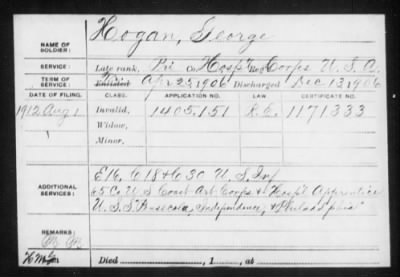 NAME OF SOLDIER: Hogan, George
SERVICE: Late rank, Pri Co. Hosp'l Reg't Corps U. S. A.
TERM OF SERVICE: Enlisted Apr 25, 1906 Discharged Dec 13, 1906
DATE OF FILING. CLASS. APPLICATION NO. LAW. CERTIFICATE NO.
1912 Aug 1 Invalid, 1405,151 1171333
Widow,
Minor,
ADDITIONAL SERVICES: E16, C18 & C30 U.S. Inf
65 Co. U S Coast Art Corps & Hosp'l Apprentice
U.S.S. Pensacola, Independence, & Philadelphia"
REMARKS:
Died , 1 , at